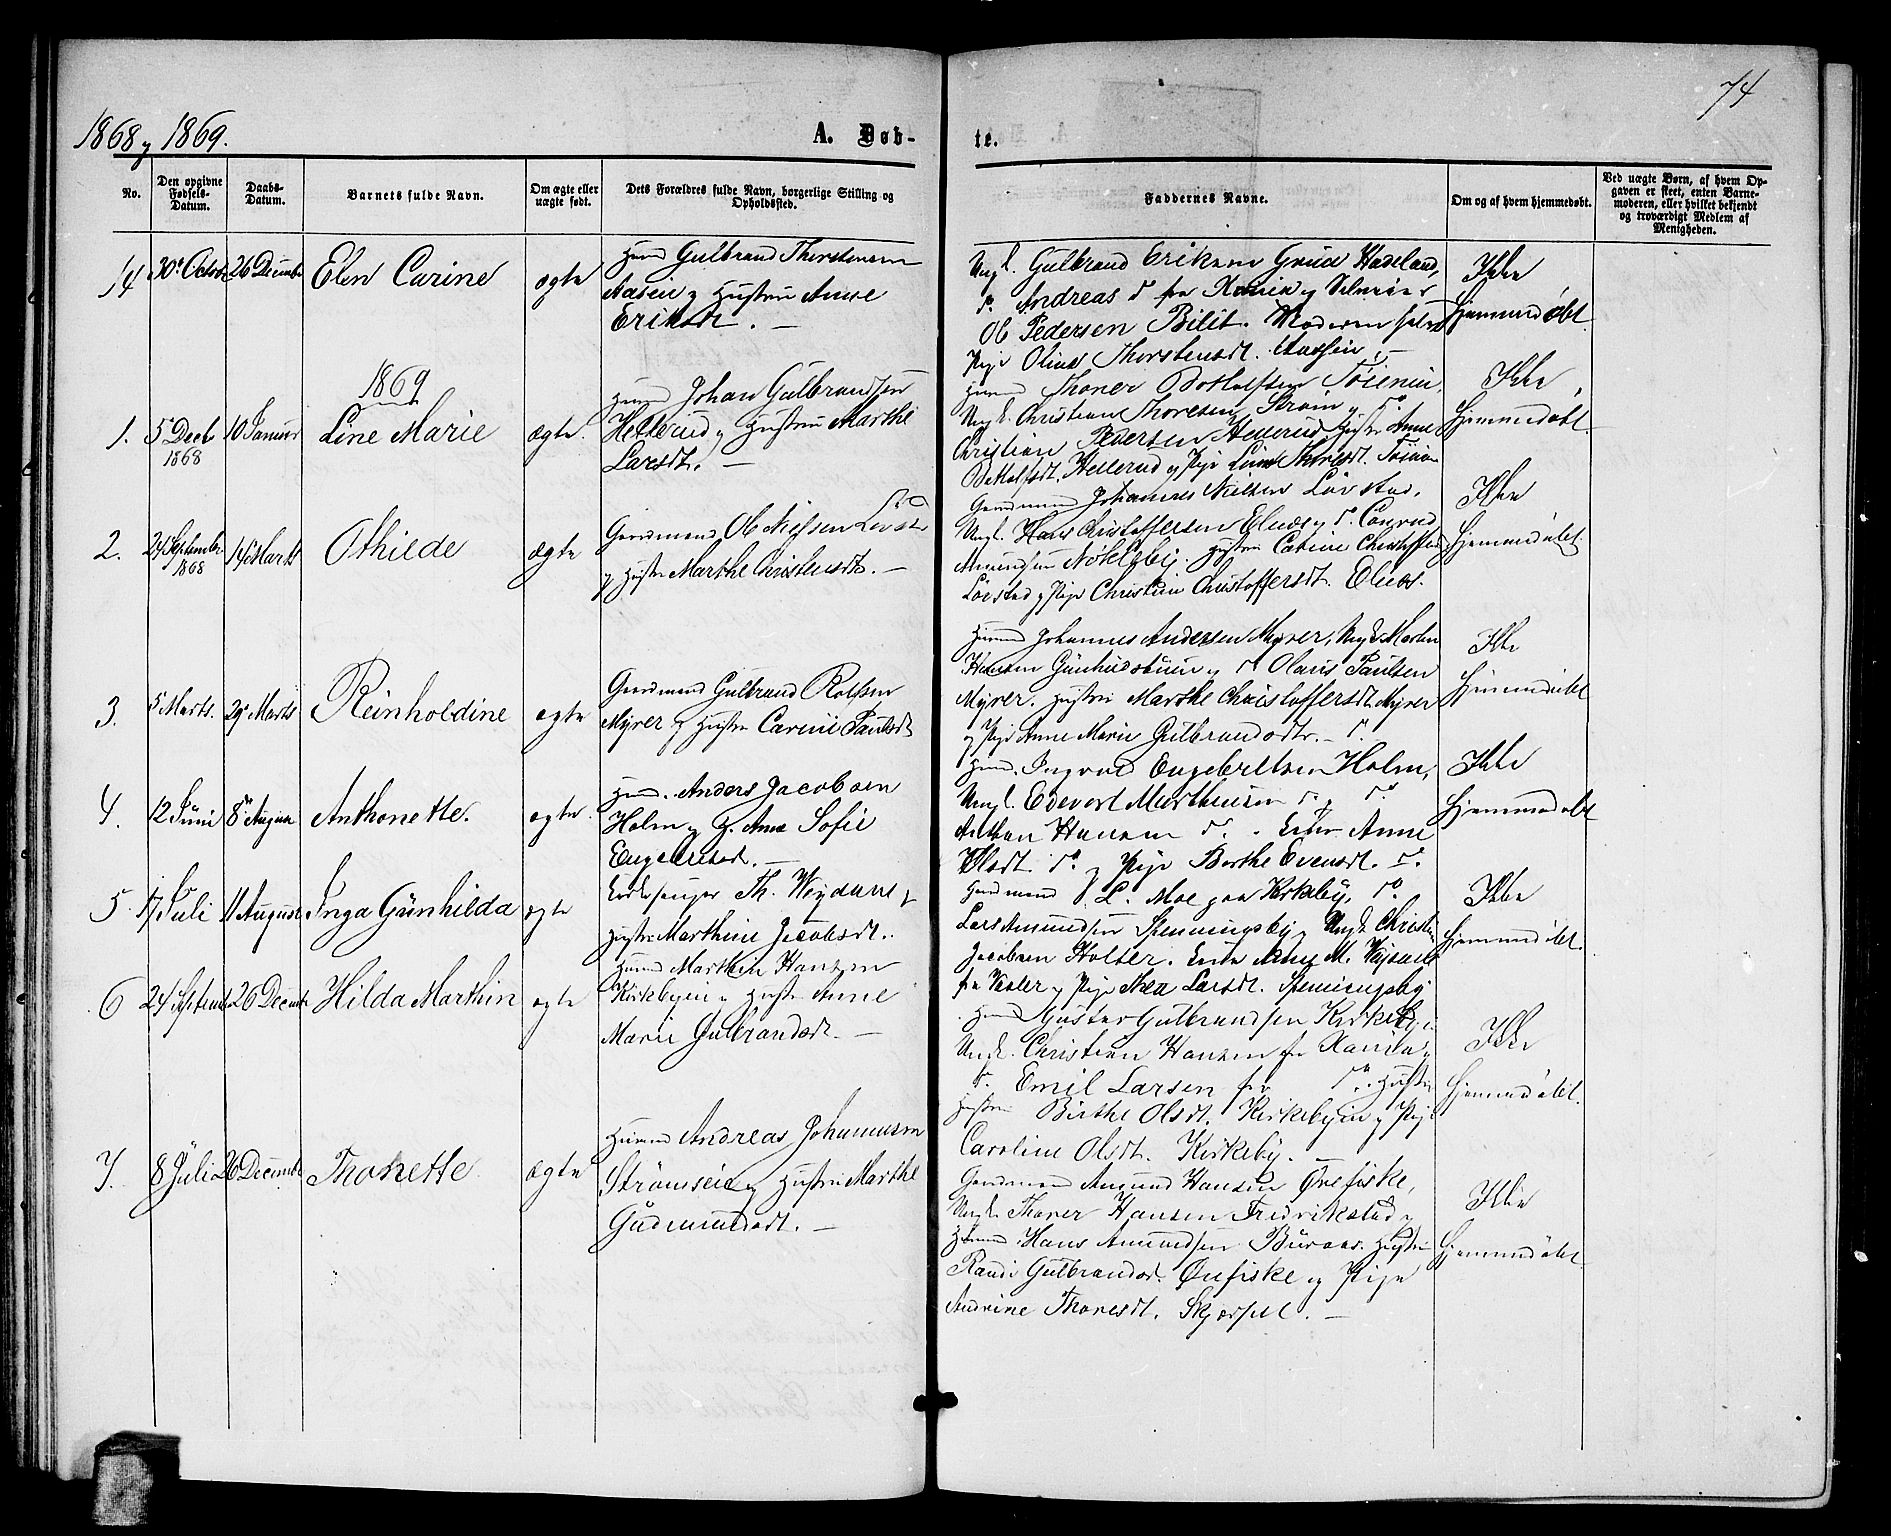 1868 y 1869.
A. Døb-
te.
74
No.
Den opgivne Fødsels-Datum.
Daabs-Datum.
Barnets fulde Navn.
Om ægte eller uægte født.
Dets Forældres fulde Navn, borgerlige Stilling og Opholdssted.
Faddernes Navne.
Om og af hvem hjemmedøbt.
Ved uægte Børn, af hvem Op-
gaven er skeet, enten Barne-
moderen, eller hvilket bekjendt
og troværdigt Medlem af
Menigheden.
14
30te Octobr
26 December
Elen Carine
ægte
Huusm Gulbrand Thorstensen
Aasen y Hustru Anne
Eriksdt. —
Ungk. Gulbrand Eriksen Hadeland,
do. Andreas do fra
Ol Pedersen Bilit. Moderen selv
Pige Oline Thorstensdt. Aasen. —
Ikke
hjemmedøbt
1869
1.
5 Decbr
1868
10 Januar
Line Marie
ægte.
Huusm Johan Gulbrandsen
Hellerud y Hustru Marthe
Larsdt. —
Huusm Thorer
Ungk. Christian Thoresen Strøm y do
Christian Pedersen Hellerud, Hustru Anne
Hellerud y Pige Thoresdt.
Ikke
hjemmedøbt.
2.
24 September
1868
14 Marts
Othilde
ægte
Gaardmand Ol Nielsen Løvstad
y Hustru Marthe Christensdt. —
Gaardmand Johannes Nielsen Løvstad,
Ungk. Hans Christoffersen y do. Conrad
Amundsen Nøkleby. Hustru Catrine
Løvstad y Pige Christine Christoffersdt.
Ikke
hjemmedøbt
3.
5 Marts.
29 Marts
Reinholdine
ægte
Gaardmand Gulbrand Rolfsen
Myrer y Hustru Carine Paulsdt
Huusm Johannes Andersen Myrer, Ungk. Marten
Hansen y do Olaus Paulsen
Myrer. Hustru Marthe Christoffersdt. Myrer
y Pige Anne Marie Gulbrandsdtr. — do.
Ikke
hjemmedøbt
4.
12 Juni
8 August
Anthonette.
ægte.
Huusm. Anders Jacobsen
Holm y H. Anne Sofie
Huusm. Ingvald Engebretsen Holm,
Ungk. Edevart Marthinsen do. y do.
Anthon Hansen do. Anne
do. y Pige Berthe Evensdt. do.
Ikke
hjemmedøbt
5
17 Juli
11 August
Inga Gunhilda
ægte
Kirkesanger Th. y
Hustru Marthine Jacobsdt.
Gaardmand L. Moe paa Kirkeby, do
Lars Amundsen Spenningsby, Ungk. Christian
Jacobsen Holter. Anne M.
fra y Pige Thea Larsdt. Spenningsby
Ikke
hjemmedøbt.
6
24 September
26 December
Hilda Marthin
ægte
Huusm Marthin Hansen
Kirkebyeie y Hustru Anne
Marie Gulbrandsdt. —
Huusm Gustav Gulbrandsen Kirkebye.
Ungk. Christian Hansen fra y
do. Emil Larsen fra do. Hustru
Hustru Birthe Olsdt. Kirkebyeie y Pige
Caroline Olsdt. Kirkeby. —
Ikke
hjemmedøbt.
7.
8 Juli
26 December
Thonette
ægte
Huusm Andreas Johannesen
Strømseie y Hustru Marthe
Gudmundsdt. —
Gaardmand Amund Hansen Ørefiske,
Ungk. Thorer Hansen Fredrikstad y
Huusm. Hans Amundsen Hustru
Randi Gulbrandsd. Ørefiske y Pige
Andrine Thoresdt. —
Ikke
hjemmedøbt